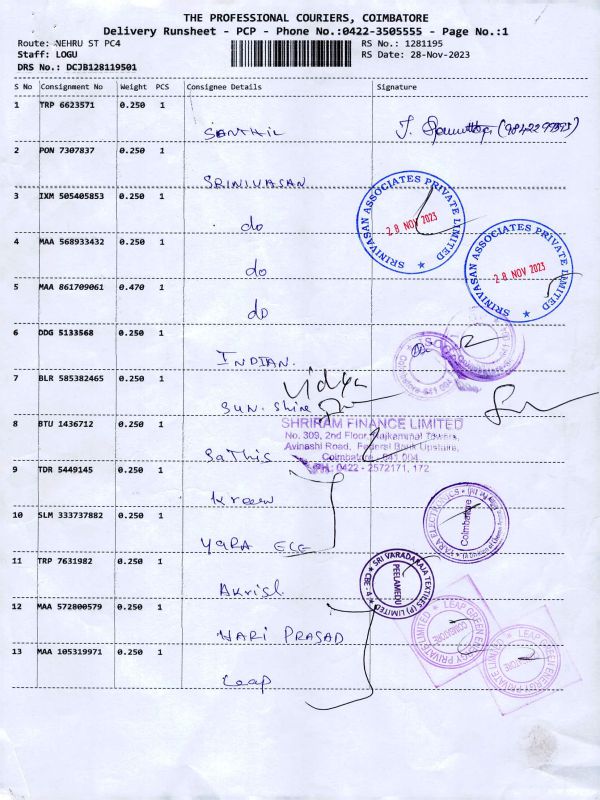 THE PROFESSIONAL COURIERS, COIMBATORE
Delivery Runsheet - PCP - Phone No.:0422-3505555 - Page No.:1
Route: NEHRU ST PC4
RS No.: 1281195
Staff: LOGU
RS Date: 28-Nov-2023
DRS No.: DCJB128119501
S No Consignment No Weight PCS Consignee Details Signature
1 TRP 6623571 0.250 1
SENTHIL
2 PON 7307837 0.250 1
SRINIVASAN
3 IXM 505405853 0.250 1
do
SRINIVASAN ASSOCIATES PRIVATE LIMITED
28 NOV 2023
4 MAA 568933432 0.250 1
do
SRINIVASAN ASSOCIATES PRIVATE LIMITED
28 NOV 2023
5 MAA 861709061 0.470 1
do
6 DDG 5133568 0.250 1
INDIAN.
Coimbatore 641 004
7 BLR 585382465 0.250 1
Vidya
Sun. Shine
8 BTU 1436712 0.250 1
SHRIRAM FINANCE LIMITED
No. 309, 2nd Floor, Rajkammal Towers,
Avinashi Road, Federal Bank Upstairs,
Coimbatore - 641 004
PH.: 0422 - 2572171, 172
Sathis
9 TDR 5449145 0.250 1
10 SLM 333737882 0.250 1
YARA ELE
YARA ELECTRONICS
Coimbatore
11 TRP 7631982 0.250 1
SRI VARADARAJA TEXTILES (P) LIMITED
PEELAMEDU
CBE - 4
12 MAA 572800579 0.250 1
HARI PRASAD
LEAP GREEN ENERGY PRIVATE LIMITED
COIMBATORE
13 MAA 105319971 0.250 1
Leap
LEAP GREEN ENERGY PRIVATE LIMITED
COIMBATORE